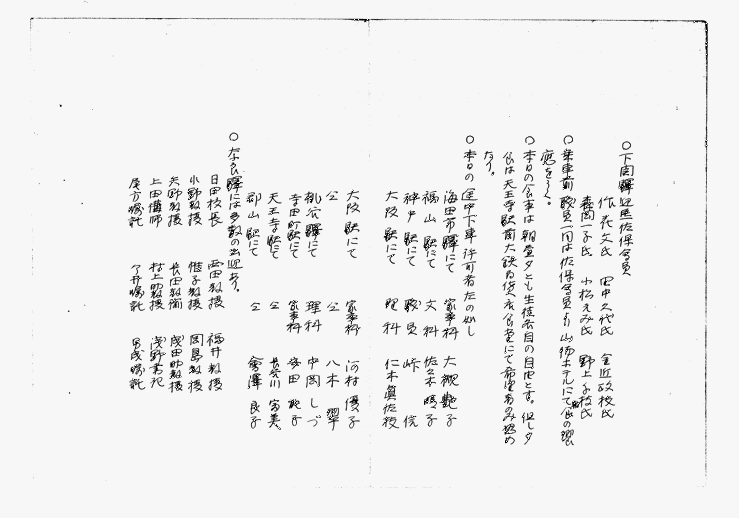 ○下関驛迎恩佐保会員
作花文氏 田中久代氏 金近政枝氏
森岡一子氏 小松えみ氏 野上子枝氏
○乗車前 職員一同は佐保会員より山陽ホテルにて食の饗
應をうく。
○本日の食事は朝昼夕とも生徒各自の自由とす。但し夕
食は天王寺駅前大鉄百貨店食堂にて希望者のみ認め
たり。
○本日の途中下車許可者左の如し
海田市驛にて 家事科 大槻艶子
福山駅にて 文科 佐々木晴子
神戸駅にて 職員 峠
大阪駅にて 理科 仁木眞佐枝
大阪駅にて 家事科 河村優子
仝 仝 八木
桃谷驛にて 理科 中岡しづ
寺田町駅にて 家事科 安田
天王寺駅にて 仝 長谷川富美
郡山駅にて 仝 會澤良子
○なら驛には多数の出迎あり。
日田校長 西田教授 福井教授
小野教授 教授 岡島教授
矢野教授 長田教衛 成田助教授
上田講師 村上助教授 浅野書記
尾方嘱託 今井嘱託 嘱託